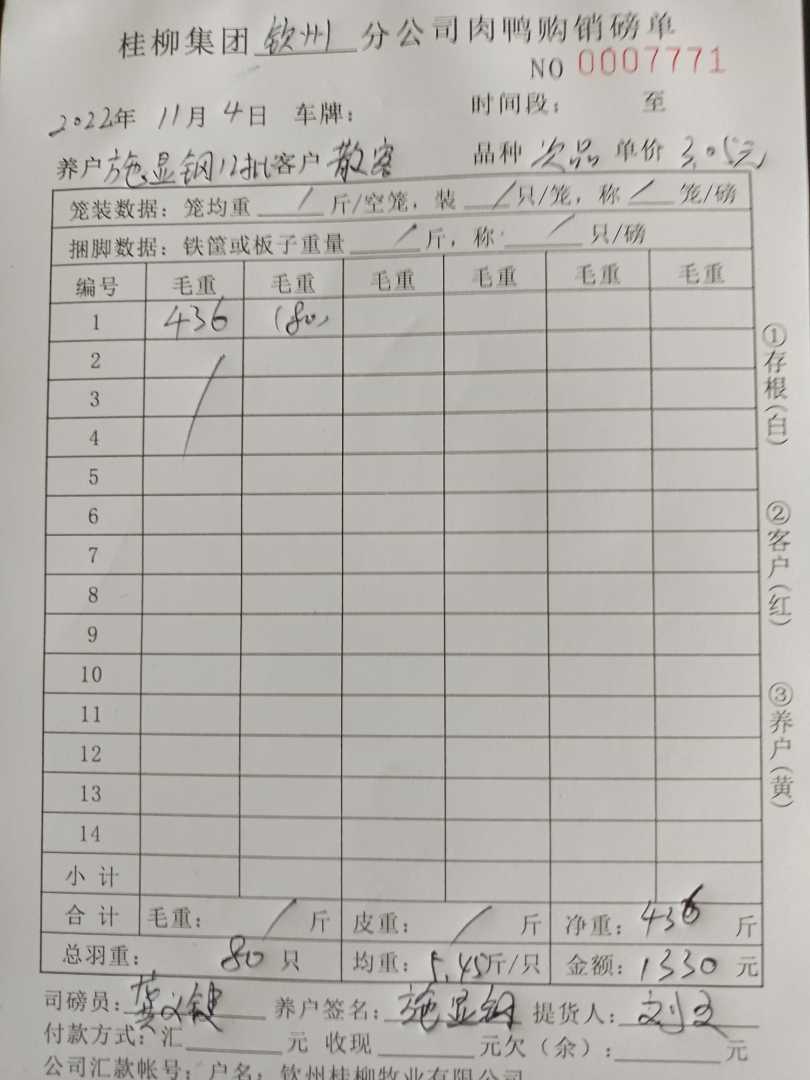 桂柳集团 钦州 分公司肉鸭购销磅单
NO 0007771
2022年 11月 4日 车牌: 时间段: 至
养户 施显钢12批 客户 散客 品种 次品 单价 3.05元
笼装数据: 笼均重 / 斤/空笼, 装 / 只/笼, 称 / 笼/磅
捆脚数据: 铁筐或板子重量 / 斤, 称 / 只/磅
编号 毛重 毛重 毛重 毛重 毛重 毛重
1 436 (80)
2 /
3
4
5
6
7
8
9
10
11
12
13
14
小计
合计 毛重: / 斤 皮重: / 斤 净重: 436 斤
总羽重: 80 只 均重: 5.45斤/只 金额: 1330 元
司磅员: 养户签名: 施显钢 提货人: 刘文
付款方式: 汇 元 收现 元欠(余): 元
公司汇款帐号: 户名: 钦州桂柳牧业有限公司
①存根(白)
②客户(红)
③养户(黄)